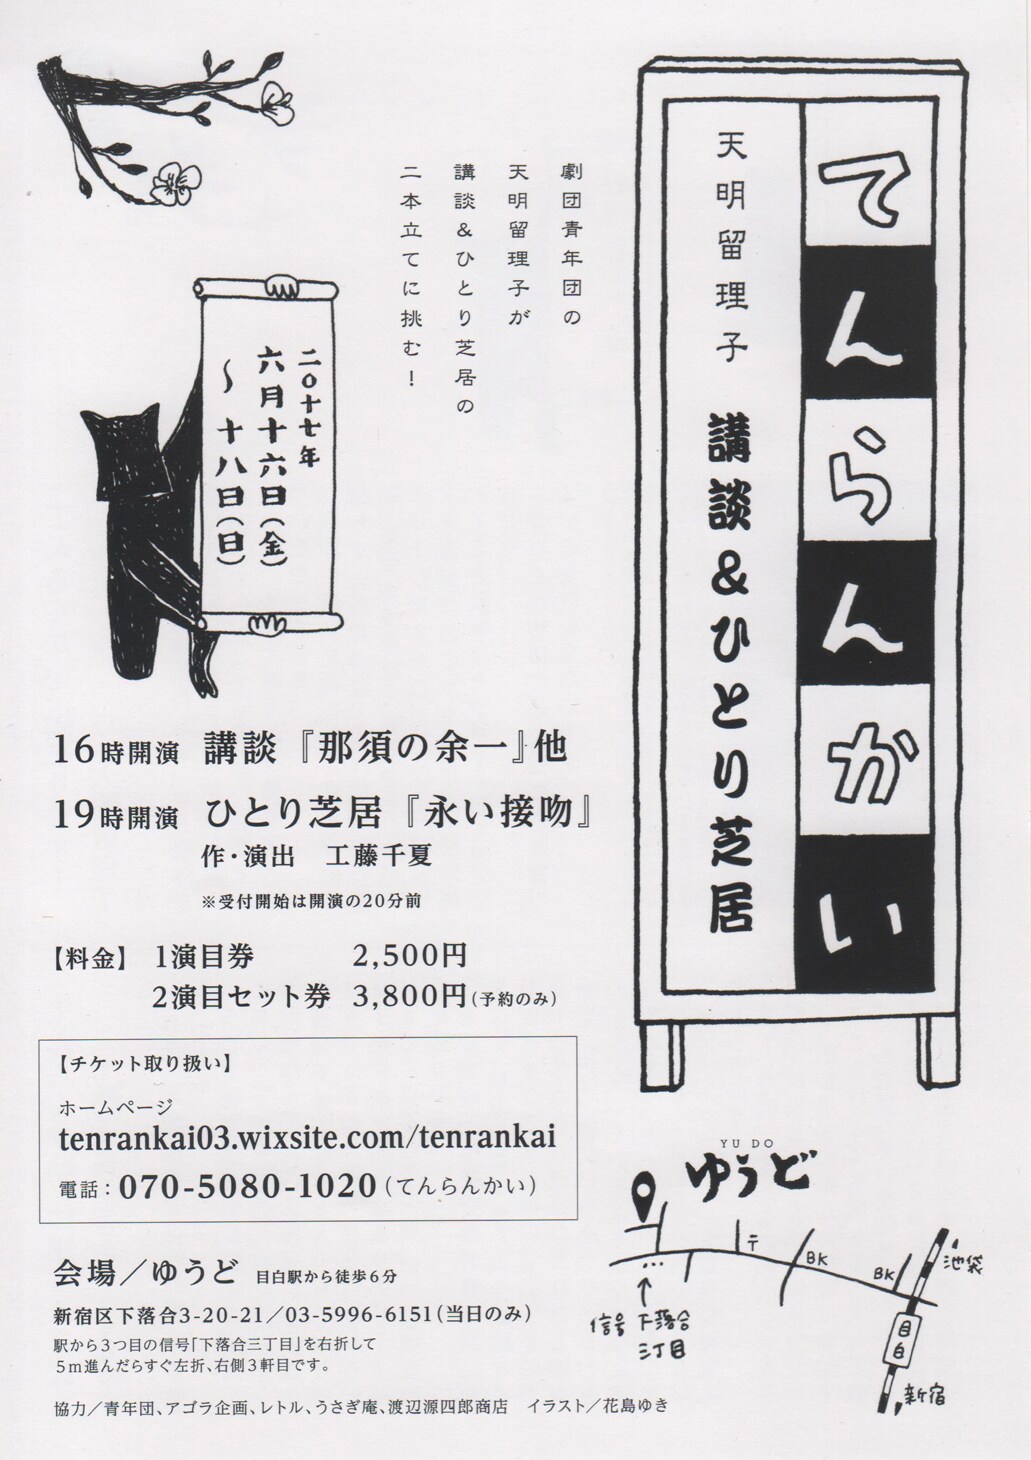 てんらんかい
天明留理子 講談&ひとり芝居
劇団青年団の
天明留理子が
講談&ひとり芝居の
二本立てに挑む!
二〇十七年
六月十六日(金)
〜十八日(日)
16時開演 講談『那須の余一』他
19時開演 ひとり芝居『永い接吻』
作・演出 工藤千夏
※受付開始は開演の20分前
【料金】 1演目券 2,500円
2演目セット券 3,800円(予約のみ)
【チケット取り扱い】
ホームページ
tenrankai03.wixsite.com/tenrankai
電話:070-5080-1020(てんらんかい)
会場/ゆうど 目白駅から徒歩6分
新宿区下落合3-20-21/03-5996-6151(当日のみ)
駅から3つ目の信号「下落合三丁目」を右折して
5m進んだらすぐ左折、右側3軒目です。
協力/青年団、アゴラ企画、レトル、うさぎ庵、渡辺源四郎商店 イラスト/花島ゆき
YU DO
ゆうど
〒
BK
BK
池袋
目白
新宿
信号 下落合
三丁目